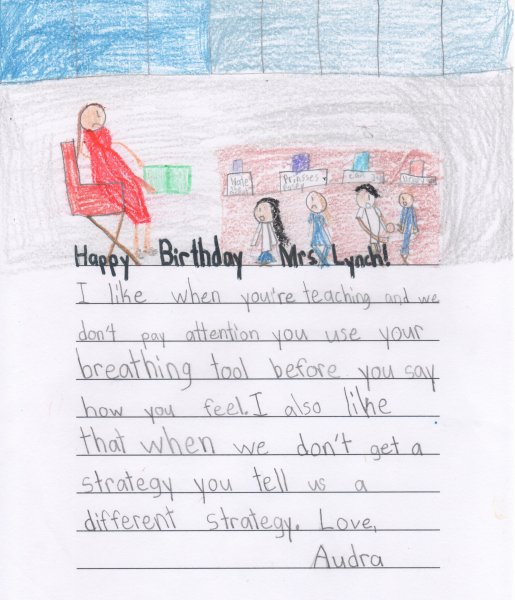 Happy Birthday Mrs. Lynch!
I like when you're teaching and we
don't pay attention you use your
breathing tool before you say
how you feel. I also like
that when we don't get a
strategy you tell us a
different strategy. Love,
Audra